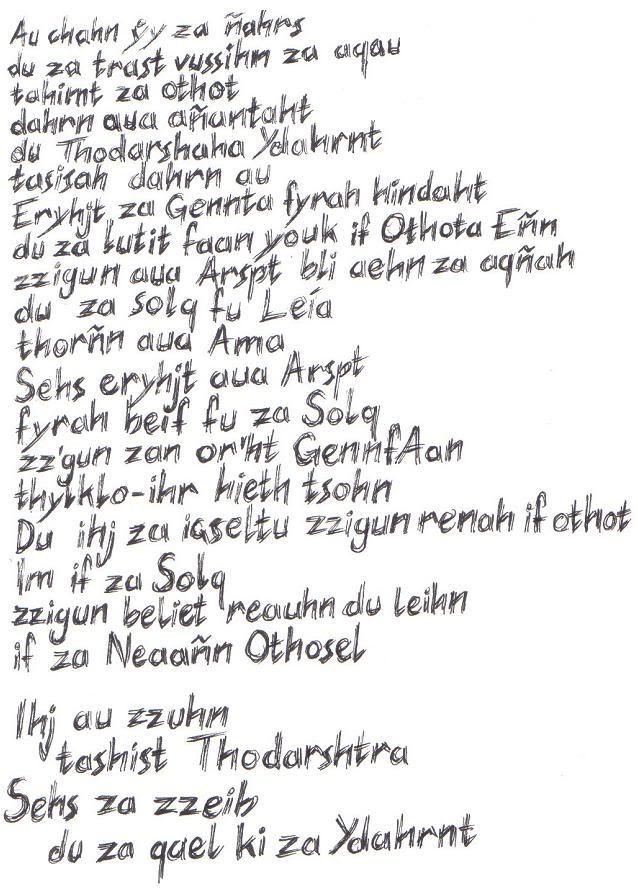 Au chahn ÿy za ñahrs
du za trast vussihn za aqau
tahimt za othot
dahrn aua añantaht
du Thodarshaha Ydahrnt
tasisah dahrn au
Eryhjt za Gennta fyrah hindaht
du za lutit faan youk if Othota Eñn
zzigun aua Arspt bli aehn za aqñah
du za solq fu Leía
thorñn aua Ama
Sehs eryhjt aua Arspt
fyrah beif fu za Solq
zz'gun zan or'ht GennfAan
thylklo-ihr hieth tsohn
Du ihj za iaseltu zzigun renah if othot
Im if za Solq
zzigun beliet reauhn du leihn
if za Neaañn Othosel
Ihj au zzuhn
tashist Thodarshtra
Sehs za zzeib
du za qael ki za Ydahrnt